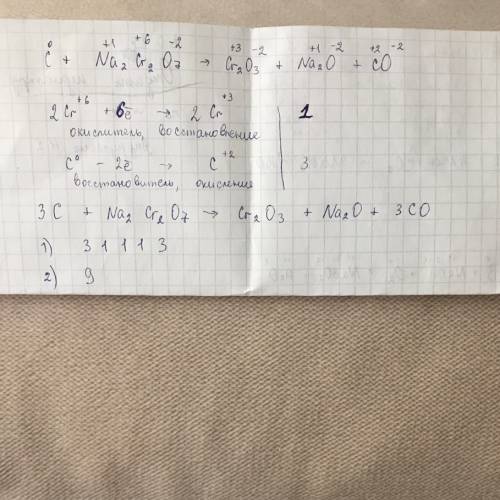 C⁰ + Na₂⁺¹Cr₂⁺⁶O₇⁻² → Cr₂⁺³O₃⁻² + Na₂⁺¹O⁻² + C⁺²O⁻²
2Cr⁺⁶ + 6ē → 2Cr⁺³ | 1
окислитель, восстановление
C⁰ – 2ē → C⁺² | 3
восстановитель, окисление
3C + Na₂Cr₂O₇ → Cr₂O₃ + Na₂O + 3CO
1) 3 1 1 1 3
2) 9